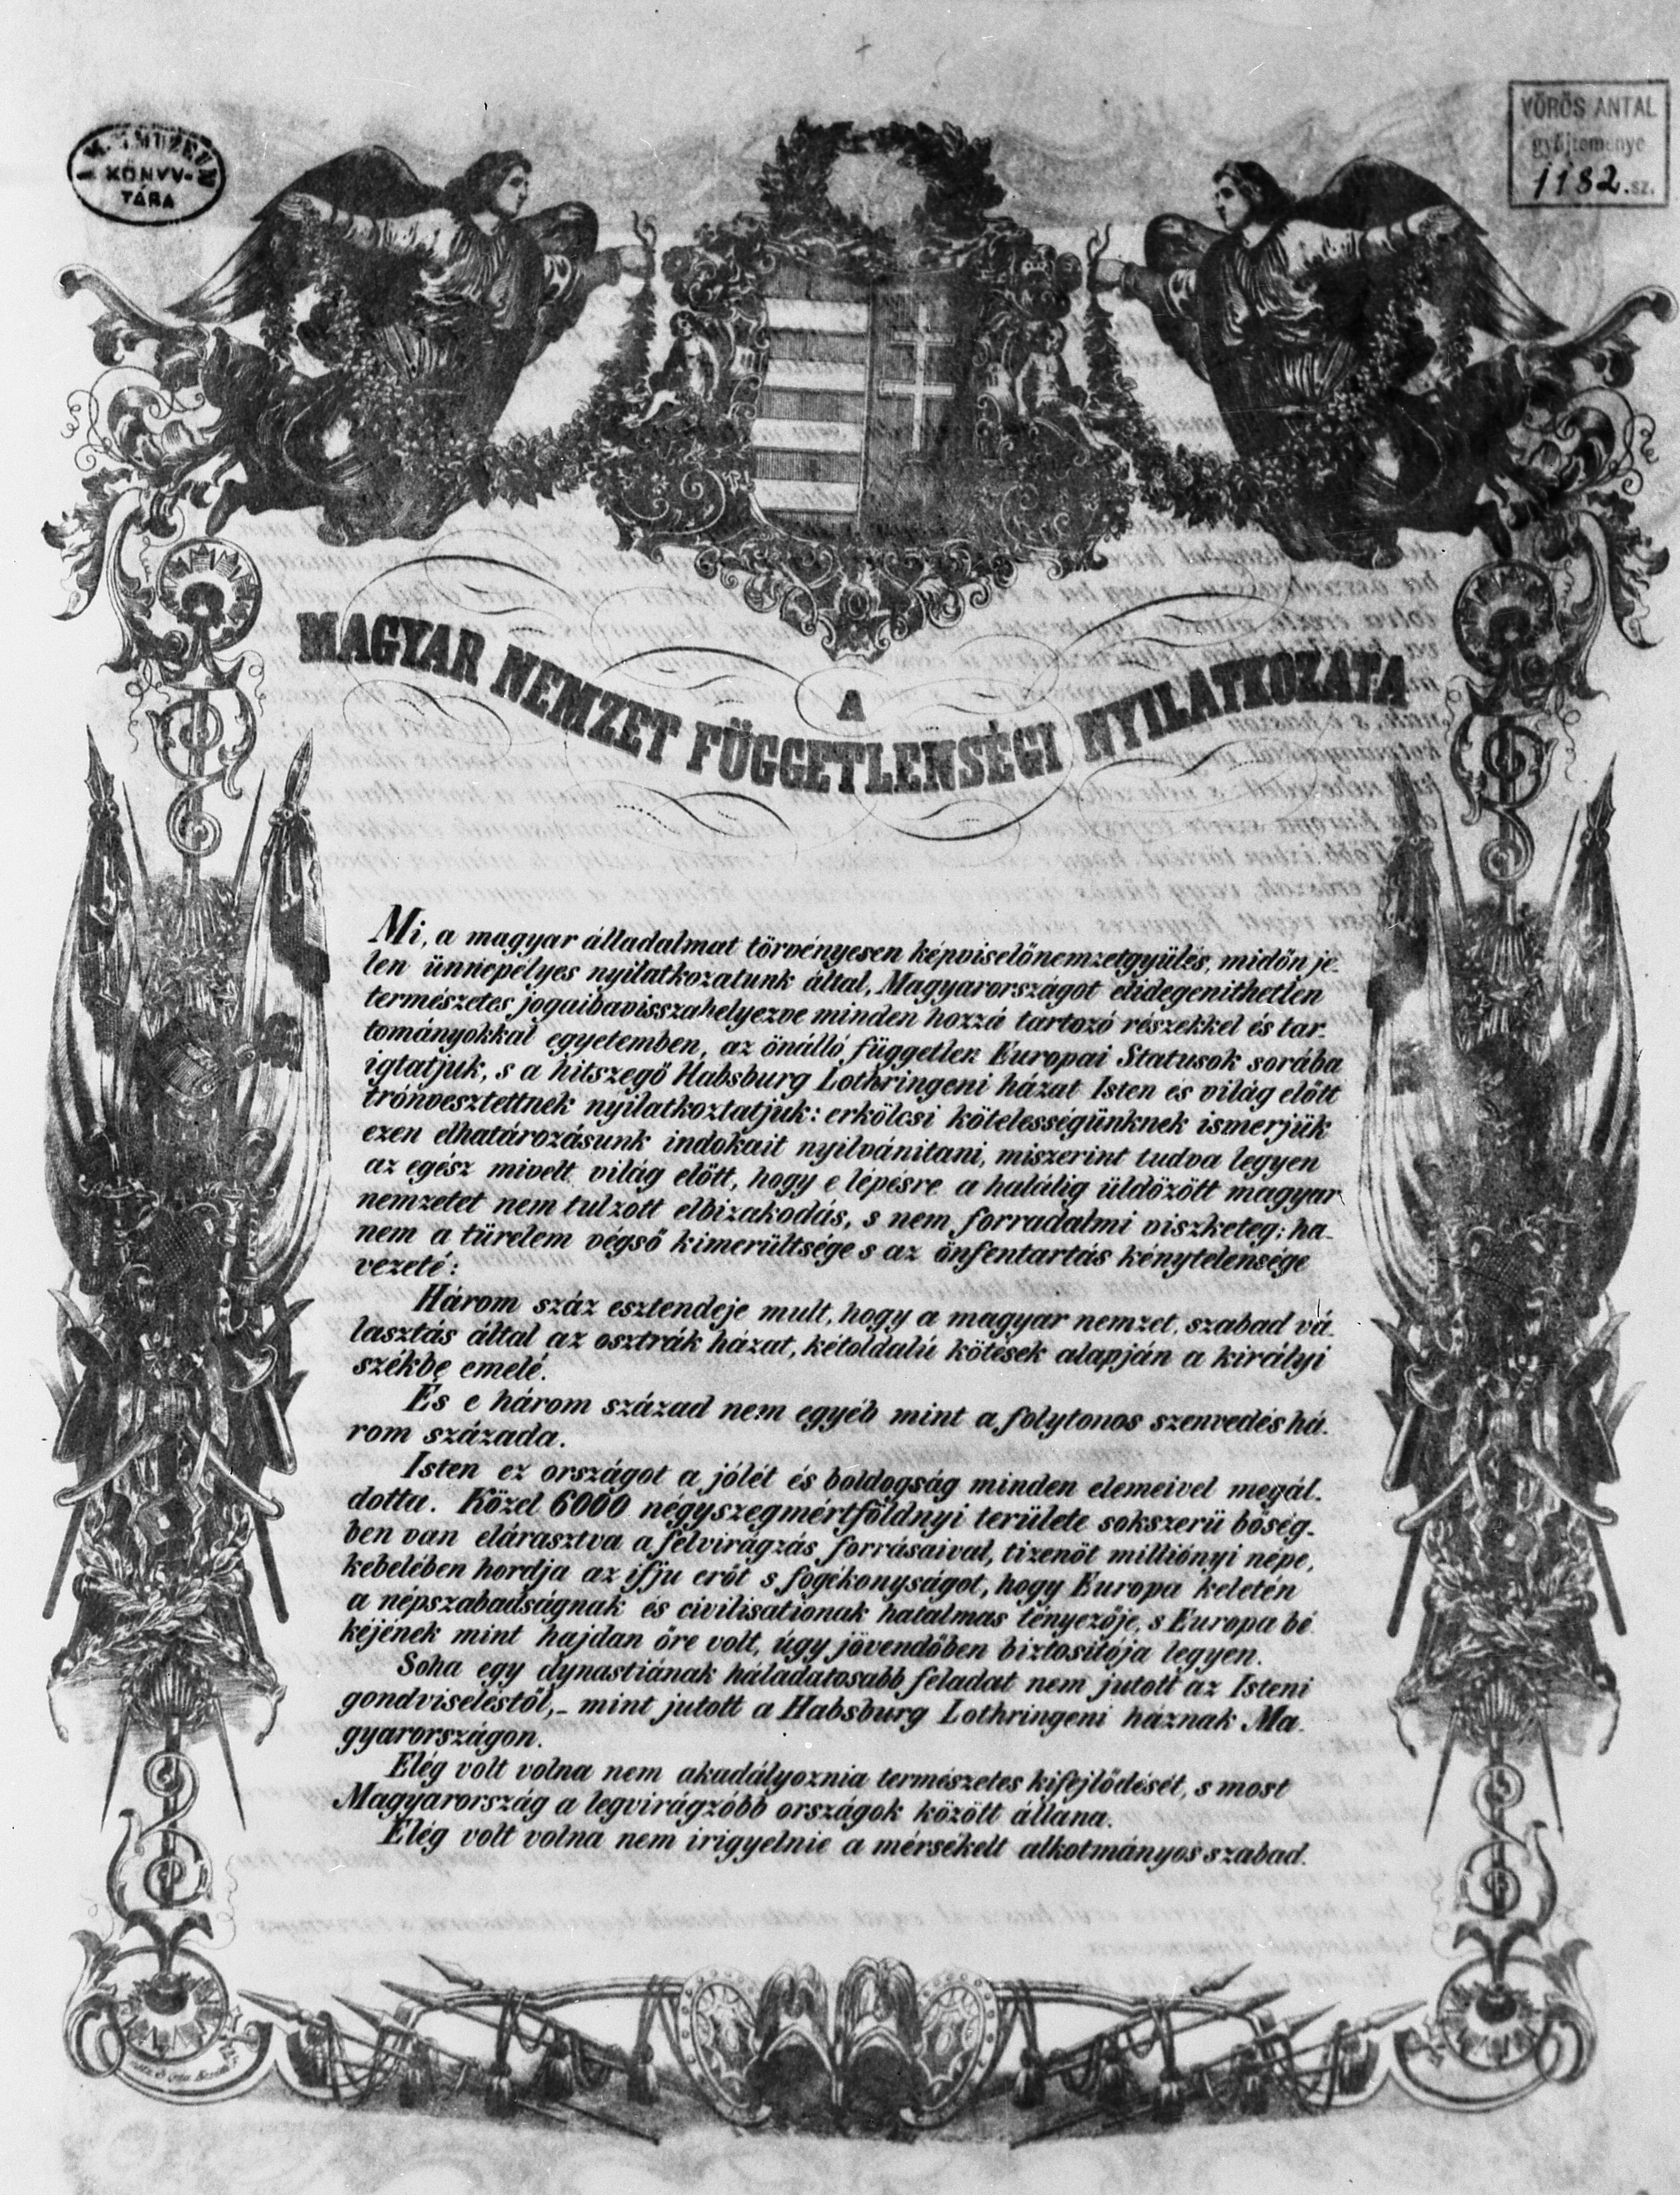 M. N. MUZEUM
KÖNYV-
TÁRA
VÖRÖS ANTAL
gyűjteménye
1182. sz.
A
MAGYAR NEMZET FÜGGETLENSÉGI NYILATKOZATA
Mi, a magyar álladalmat törvényesen képviselő nemzetgyülés, midőn je-
len ünnepélyes nyilatkozatunk által, Magyarországot elidegenithetlen
természetes jogaiba visszahelyezve minden hozzá tartozó részekkel és tar-
tományokkal egyetemben, az önálló független Europai Statusok sorába
igtatjuk, s a hitszegő Habsburg Lothringeni házat Isten és világ előtt
trónvesztettnek nyilatkoztatjuk: erkölcsi kötelességünknek ismerjük
ezen elhatározásunk indokait nyilvánitani, miszerint tudva legyen
az egész mivelt világ előtt, hogy e lépésre a halálig üldözött magyar
nemzetet nem tulzott elbizakodás, s nem forradalmi viszketeg; ha-
nem a türelem végső kimerültsége s az önfentartás kénytelensége
vezeté:
Három száz esztendeje mult, hogy a magyar nemzet, szabad vá-
lasztás által az osztrák házat, kétoldalú kötések alapján a királyi
székbe emelé.
És e három század nem egyéb mint a folytonos szenvedés há-
rom százada.
Isten ez országot a jólét és boldogság minden elemeivel megál-
dotta. Közel 6000 négyszegmértföldnyi területe sokszerü bőség-
ben van elárasztva a felvirágzás forrásaival, tizenöt milliónyi népe,
kebelében hordja az ifju erőt s fogékonyságot, hogy Europa keletén
a népszabadságnak és civilisationak hatalmas tényezője, s Europa bé-
kéjének mint hajdan őre volt, úgy jövendőben biztositója legyen.
Soha egy dynastiának háladatosabb feladat nem jutott az Isteni
gondviseléstől,- mint jutott a Habsburg Lothringeni háznak Ma-
gyarországon.
Elég volt volna nem akadályoznia természetes kifejlődését, s most
Magyarország a legvirágzóbb országok között állana.
Elég volt volna nem irigyelnie a mérsékelt alkotmányos szabad-